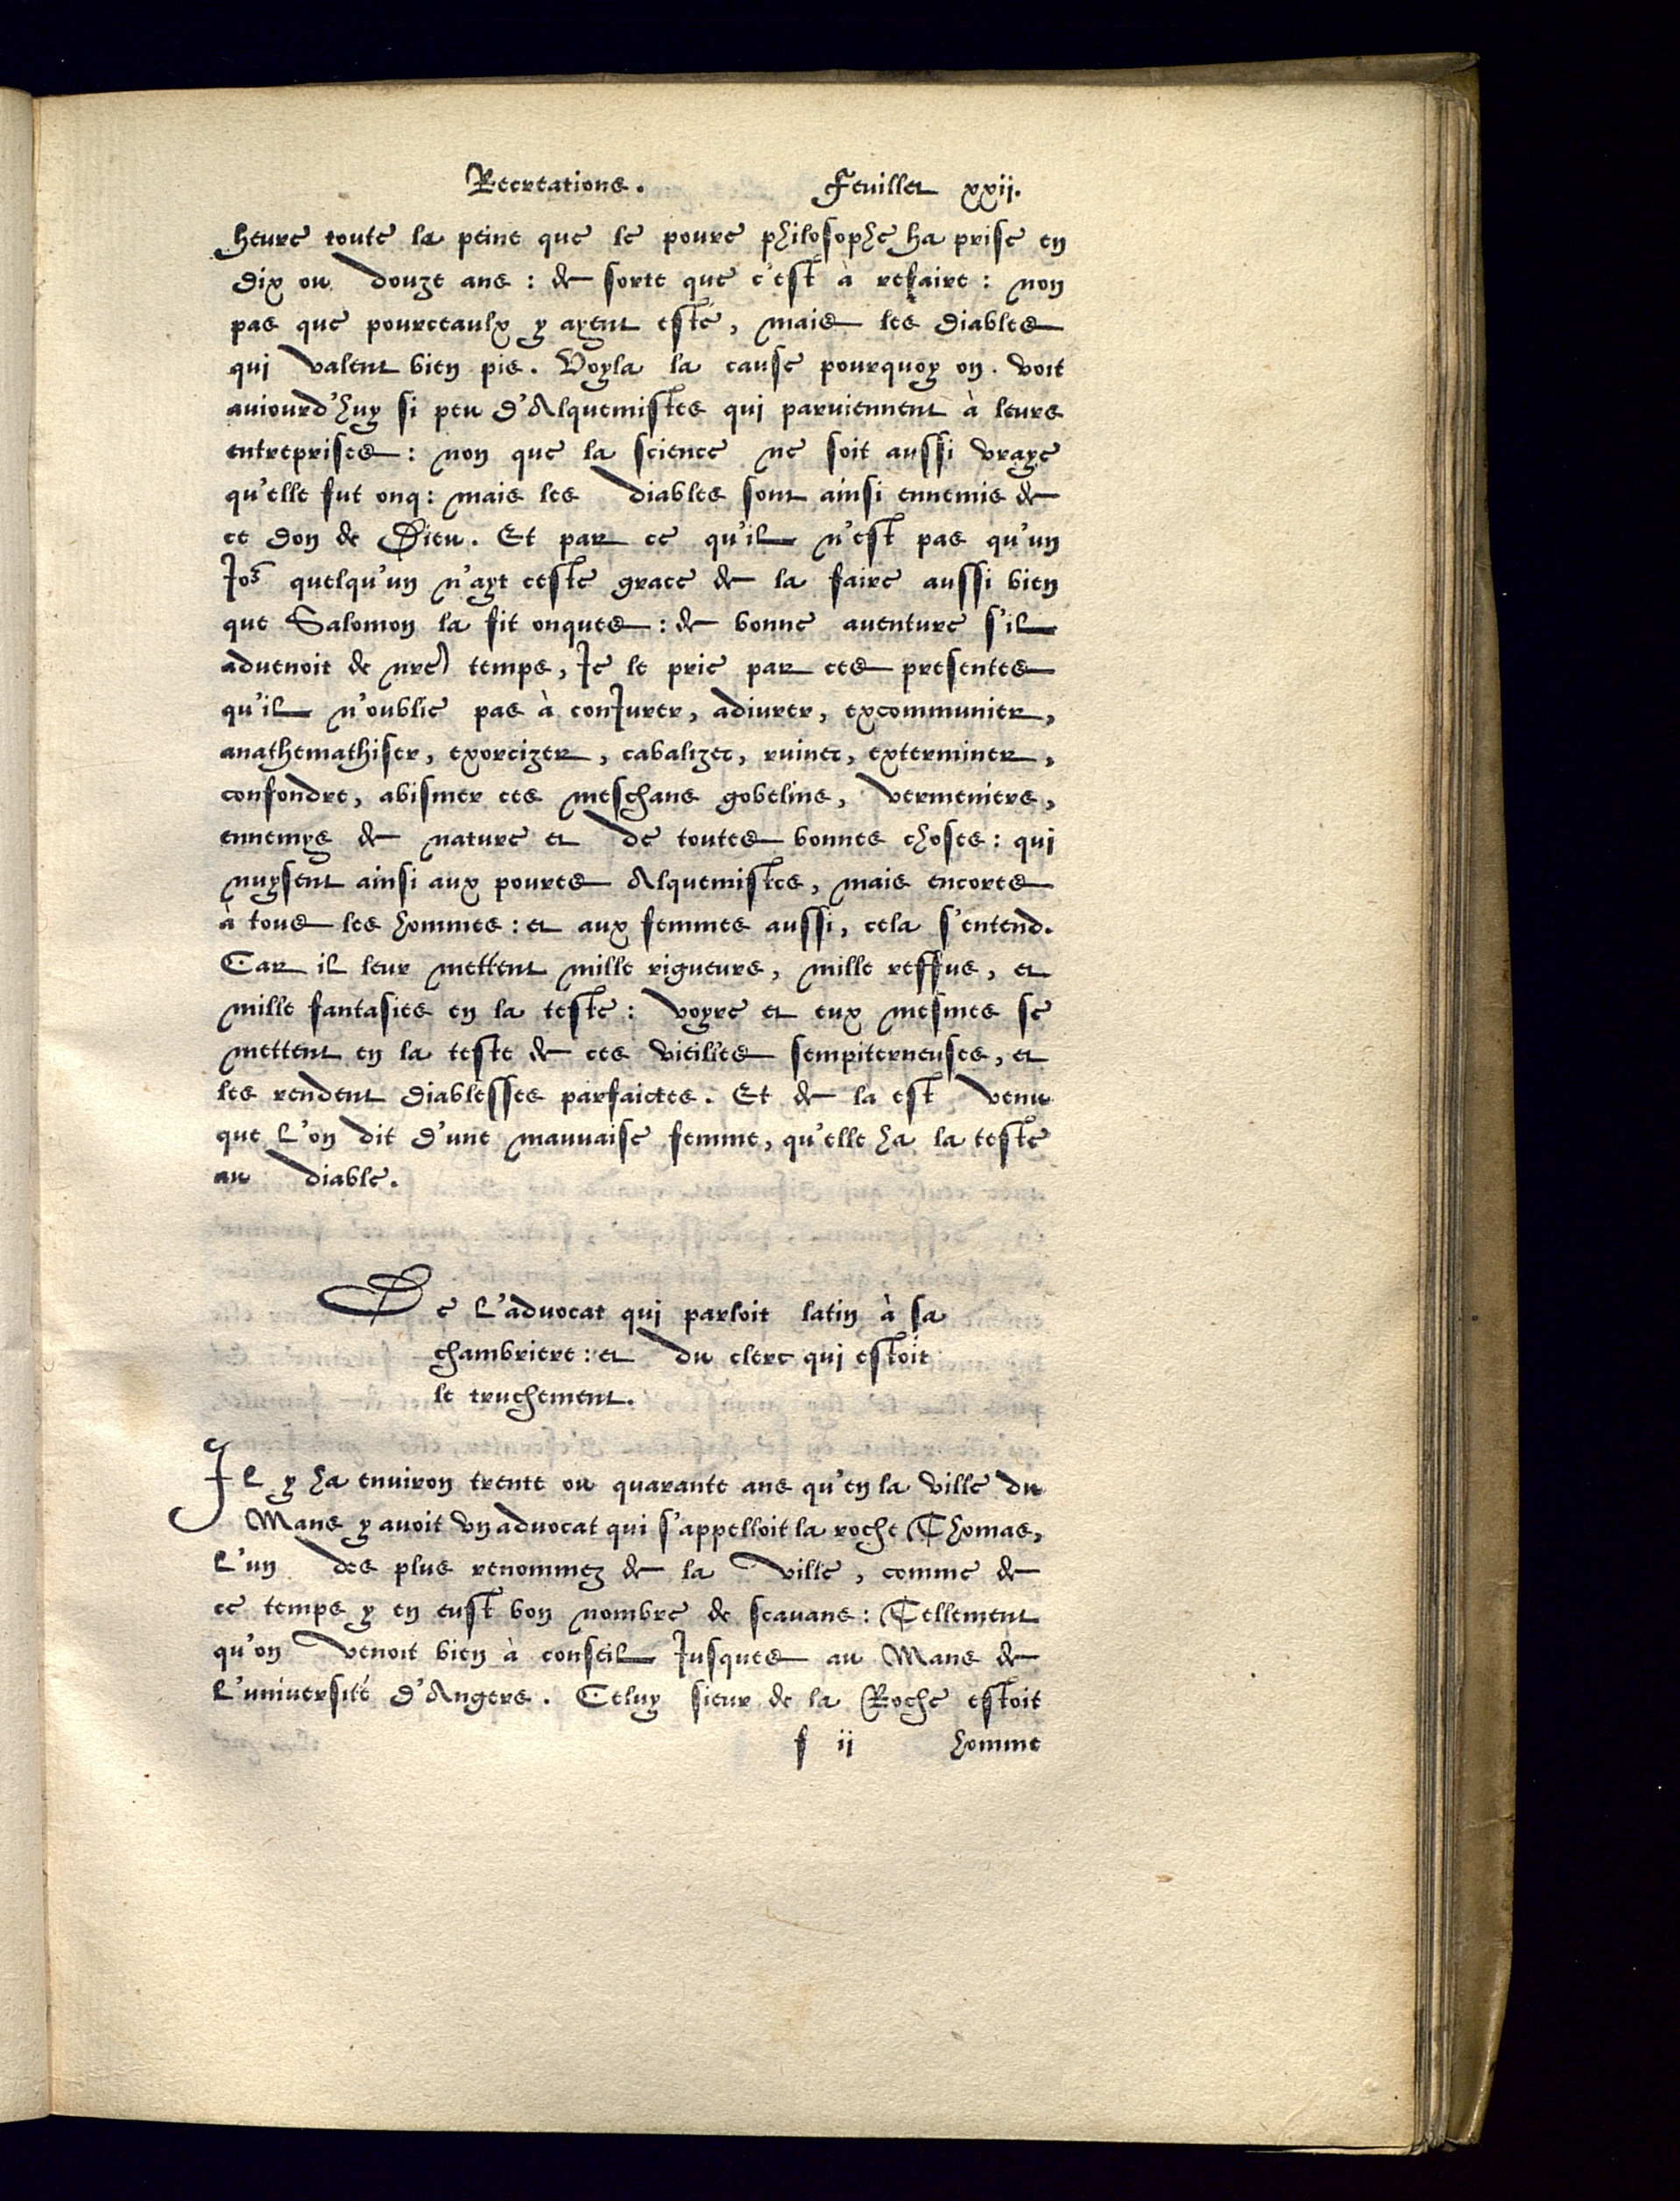 Recreations. Feuillet xxij.
heure toute la peine que le poure philosophe ha prise en
dix ou douze ans : de sorte que c'est à refaire : non
pas que pourceaulx y ayent esté, mais les diables
qui valent bien pis. Voyla la cause pourquoy on voit
auiourd'huy si peu d'Alquemistes qui paruiennent à leurs
entreprises : non que la science ne soit aussi vraye
qu'elle fut onq : mais les diables sont ainsi ennemis de
ce don de Dieu. Et par ce qu'il n'est pas qu'un
Jor quelqu'un n'ayt ceste grace de la faire aussi bien
que Salomon la fit onques : de bonne auenture s'il
aduenoit de nre temps, Je le prie par ces presentes
qu'il n'oublie pas à conJurer, adiurer, excommunier,
anathemathiser, exorcizer, cabalizer, ruiner, exterminer,
confondre, abismer ces meschans gobelins, vermeniers,
ennemys de nature et de toutes bonnes choses : qui
nuysent ainsi aux poures Alquemistes, mais encores
à tous les hommes : et aux femmes aussi, cela s'entend.
Car il leur mettent mille rigueurs, mille reffus, et
mille fantasies en la teste : voyre et eux mesmes se
mettent en la teste de ces vieilles sempiterneuses, et
les rendent diablesses parfaictes. Et de la est venu
que l'on dit d'une mauuaise femme, qu'elle ha la teste
au diable.
De l'aduocat qui parloit latin à sa
chambriere : et du clerc qui estoit
le truchement.
Il y ha enuiron trente ou quarante ans qu'en la ville du
Mans y auoit vn aduocat qui s'appelloit la roche Thomas,
l'un des plus renommez de la ville, comme de
ce temps y en eust bon nombre de scauans : Tellement
qu'on venoit bien à conseil Jusques au Mans de
l'uniuersité d'Angers. Celuy sieur de la Roche estoit
f ij homme